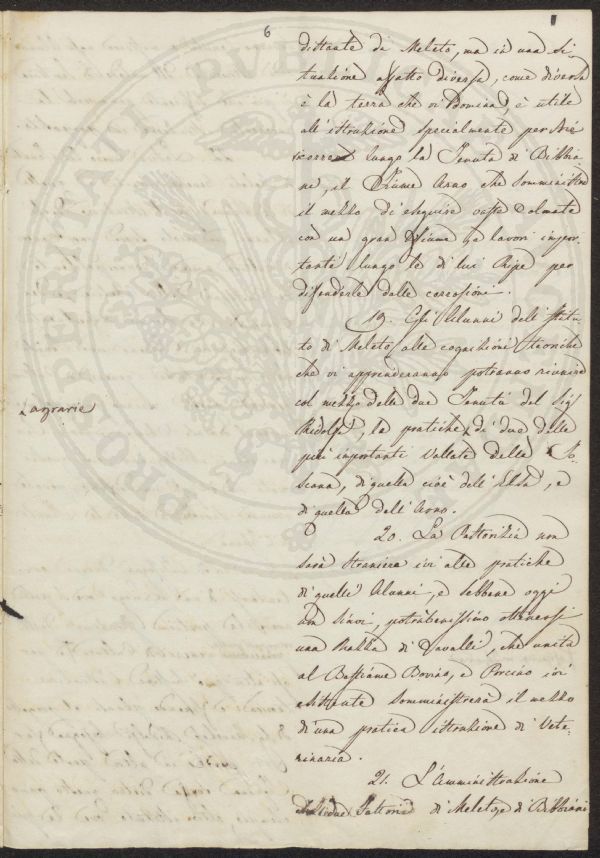 6
distante da Meleto, ma in una si-
tuazione affatto diversa, come diversa
è la terra che vi domina, è utile
all'istruzione specialmente perchè
scorre lungo la Tenuta di Bibbia-
ni, il Fiume Arno che somministra
il mezzo di eseguire vaste Colmate
con un gran Fiume, e lavori impor-
tanti lungo le di lui Ripe per
difenderle dalle corrosioni.
19. Gli Alunni dell'Istitu-
to di Meleto, alle cognizioni teoriche
che vi apprenderanno potranno riunire
col mezzo delle due Tenute del Sig
Ridolfi, le pratiche di due delle
agrarie
più importanti Vallate della To-
scana, di quella cioè dell'Elsa, e
di quella dell'Arno.
20. La Pastorizia non
sarà straniera ivi alle pratiche
di quelli Alunni, e sebbene oggi
non siavi, potrà benissimo ottenersi
una Razza di Cavalli, che unita
al Bestiame Bovino, e Porcino ivi
esistente somministrerà il mezzo
d'una pratica istruzione di Vete-
rinaria.
21. L'Amministrazione
delle due Fattorie di Meleto, e di Bibbiani
PROSPERITATI PUBLICAE